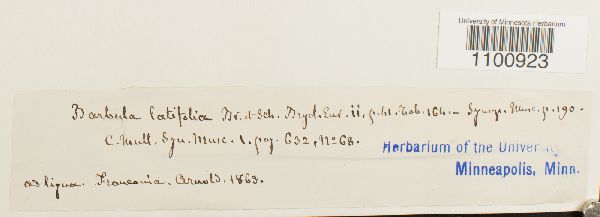 University of Minnesota Herbarium
1100923
Barbula latifolia Br. et Sch. Bryol. Eur. ii. p. 41. Tab. 164. – Synops. Musc. p. 190.
C. Mull. Syn. Musc. 1. pag. 632, No 68.
Herbarium of the University
Minneapolis, Minn.
ad ligna. Franconia. Arnold. 1863.